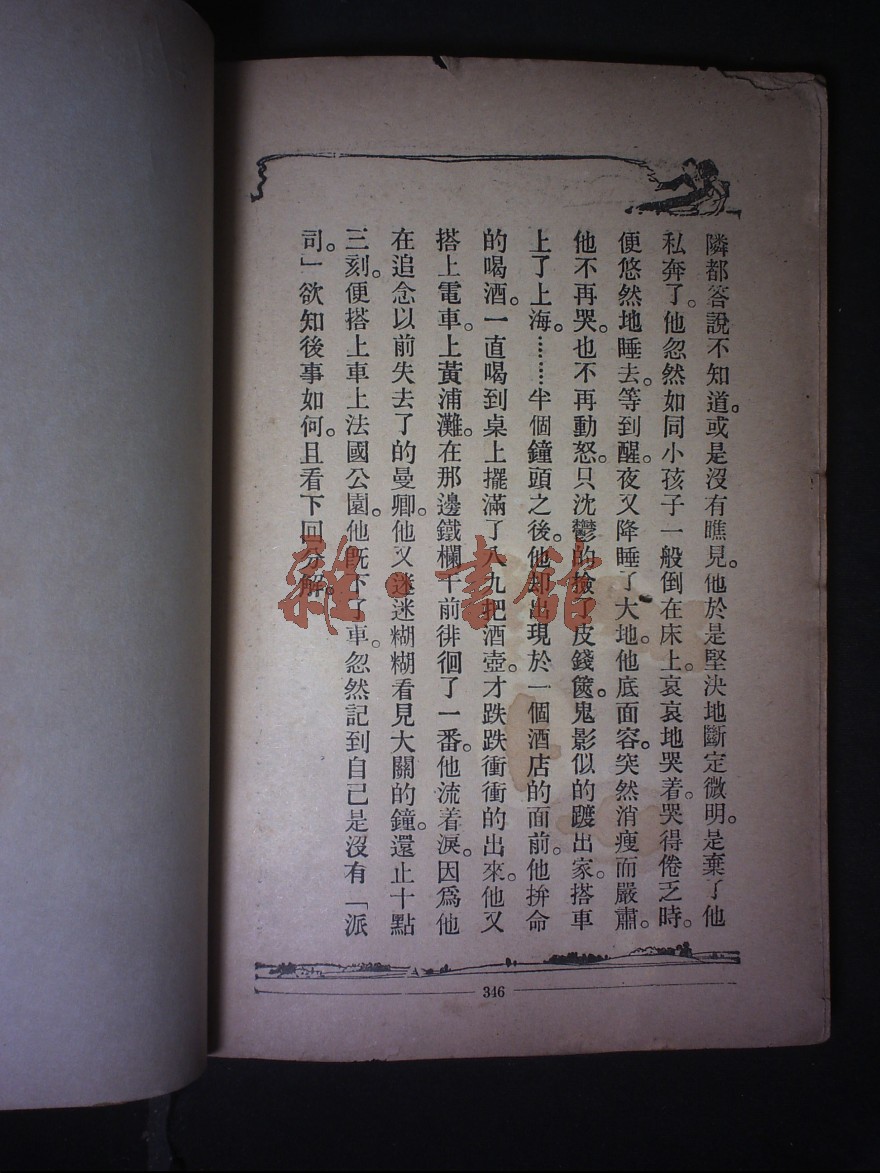 隣都答說不知道。或是沒有瞧見。他於是堅決地斷定微明。是棄了他
私奔了。他忽然如同小孩子一般倒在床上。哀哀地哭着。哭得倦乏時。
便悠然地睡去。等到醒。夜又降睡了大地。他底面容。突然消瘦而嚴肅。
他不再哭。也不再動怒。只沈鬱的撿了皮錢篋。鬼影似的踱出家。搭車
上了上海。………半個鐘頭之後。他却出現於一個酒店的面前。他拚命
的喝酒。一直喝到桌上擺滿了八九把酒壺。才跌跌衝衝的出來。他又
搭上電車。上黃浦灘。在那邊鐵欄干前徘徊了一番。他流着淚。因爲他
在追念以前失去了的曼卿。他又迷迷糊糊看見大關的鐘。還止十點
三刻。便搭上車上法國公園。他旣下了車。忽然記到自己是沒有「派
司。」欲知後事如何。且看下回分解。
346
雜·書館